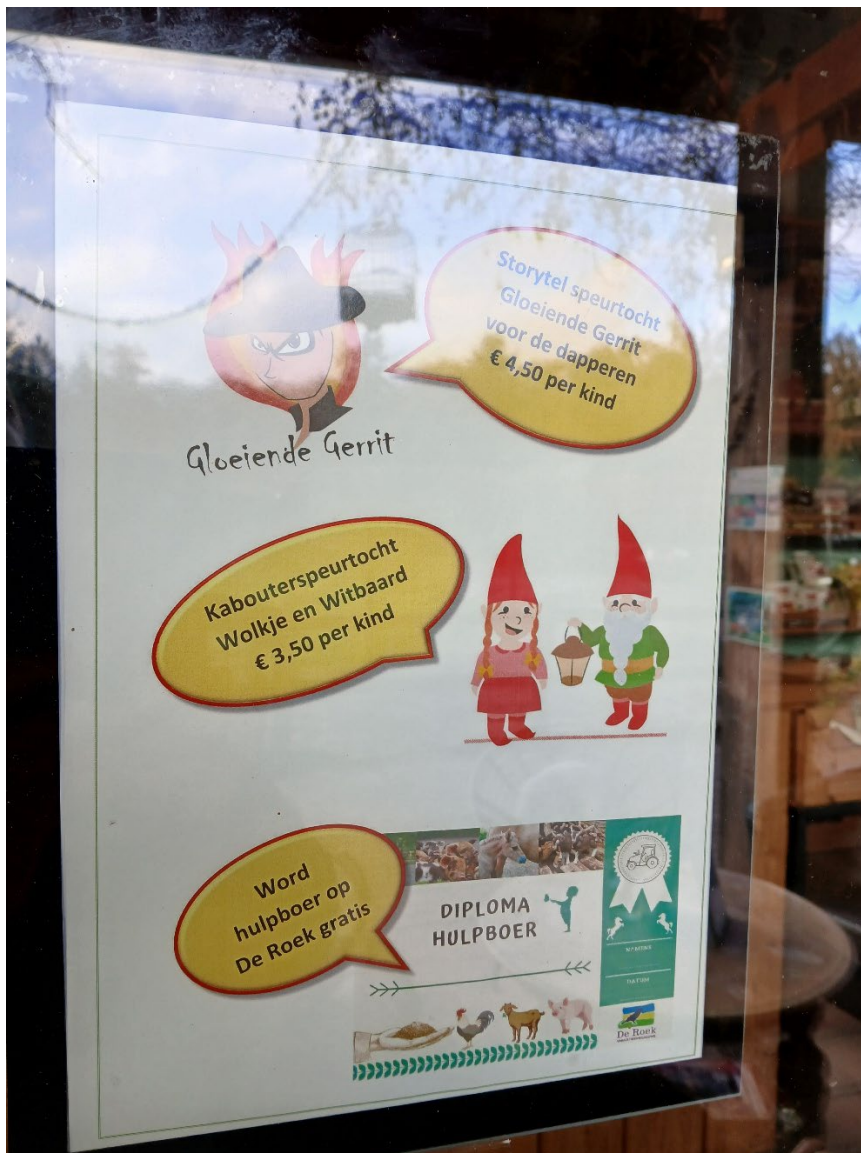 Storytel speurtocht
Gloeiende Gerrit
voor de dapperen
€ 4,50 per kind
Gloeiende Gerrit
Kabouterspeurtocht
Wolkje en Witbaard
€ 3,50 per kind
Word
hulpboer op
De Roek gratis
DIPLOMA
HULPBOER
DATUM
De Roek